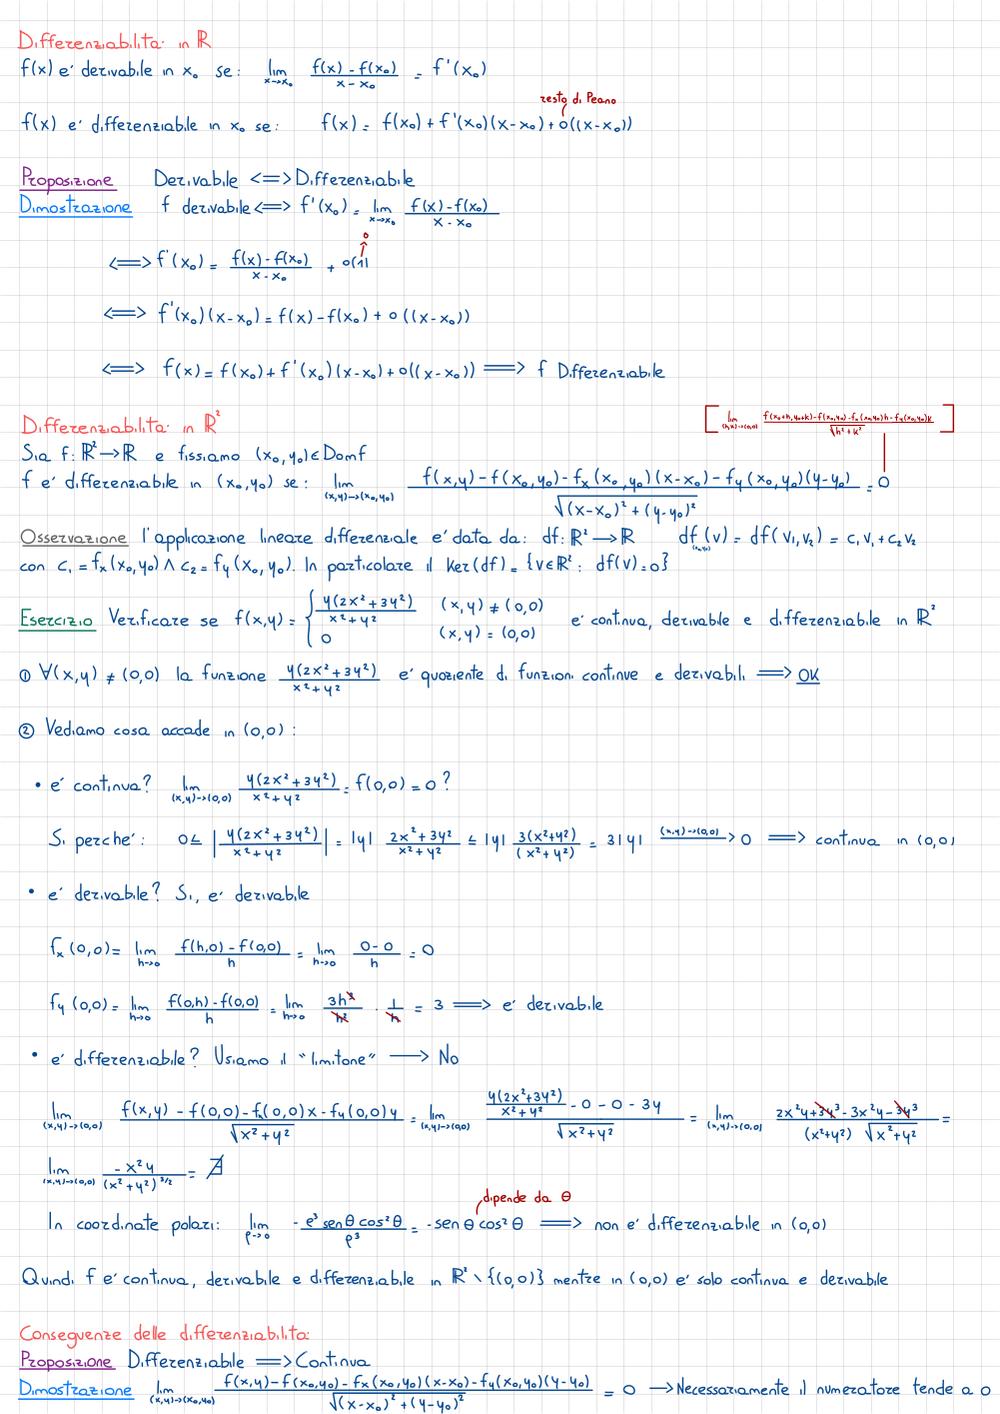 Differenziabilita' in ℝ
f(x) e' derivabile in x₀ se: lim_{x→x₀} (f(x) - f(x₀))/(x - x₀) = f'(x₀)
resto di Peano
f(x) e' differenziabile in x₀ se: f(x) = f(x₀) + f'(x₀)(x-x₀) + o((x-x₀))
Proposizione Derivabile <=> Differenziabile
Dimostrazione f derivabile <=> f'(x₀) = lim_{x→x₀} (f(x)-f(x₀))/(x - x₀)
0
<=> f'(x₀) = (f(x) - f(x₀))/(x - x₀) + o(1)
<=> f'(x₀)(x-x₀) = f(x) - f(x₀) + o((x-x₀))
<=> f(x) = f(x₀) + f'(x₀)(x-x₀) + o((x-x₀)) => f Differenziabile
Differenziabilita' in ℝ² [lim_{(h,k)→(0,0)} (f(x₀+h,y₀+k) - f(x₀,y₀) - fₓ(x₀,y₀)h - f_y(x₀,y₀)k)/√(h²+k²)]
Sia f: ℝ² → ℝ e fissiamo (x₀,y₀) ∈ Domf
f e' differenziabile in (x₀,y₀) se: lim_{(x,y)→(x₀,y₀)} (f(x,y) - f(x₀,y₀) - fₓ(x₀,y₀)(x-x₀) - f_y(x₀,y₀)(y-y₀))/√((x-x₀)² + (y-y₀)²) = 0
Osservazione l'applicazione lineare differenziale e' data da: df: ℝ² → ℝ df_{(x₀,y₀)}(v) = df(v₁,v₂) = c₁v₁ + c₂v₂
con c₁ = fₓ(x₀,y₀) ∧ c₂ = f_y(x₀,y₀). In particolare il ker(df) = {v∈ℝ² : df(v) = 0}
Esercizio Verificare se f(x,y) = { y(2x²+3y²)/(x²+y²) (x,y) ≠ (0,0) ; 0 (x,y) = (0,0) e' continua, derivabile e differenziabile in ℝ²
① ∀(x,y) ≠ (0,0) la funzione y(2x²+3y²)/(x²+y²) e' quoziente di funzioni continue e derivabili => OK
② Vediamo cosa accade in (0,0) :
• e' continua? lim_{(x,y)→(0,0)} y(2x²+3y²)/(x²+y²) = f(0,0) = 0 ?
Si perche': 0 ≤ |y(2x²+3y²)/(x²+y²)| = |y| (2x²+3y²)/(x²+y²) ≤ |y| 3(x²+y²)/(x²+y²) = 3|y| →^{(x,y)→(0,0)} 0 => continua in (0,0)
• e' derivabile? Si, e' derivabile
fₓ(0,0) = lim_{h→0} (f(h,0) - f(0,0))/h = lim_{h→0} (0-0)/h = 0
f_y(0,0) = lim_{h→0} (f(0,h) - f(0,0))/h = lim_{h→0} 3h³/h² · 1/h = 3 => e' derivabile
• e' differenziabile? Usiamo il "limitone" → No
lim_{(x,y)→(0,0)} (f(x,y) - f(0,0) - fₓ(0,0)x - f_y(0,0)y)/√(x²+y²) = lim_{(x,y)→(0,0)} (y(2x²+3y²)/(x²+y²) - 0 - 0 - 3y)/√(x²+y²) = lim_{(x,y)→(0,0)} (2x²y + 3y³ - 3x²y - 3y³)/((x²+y²)√(x²+y²)) =
lim_{(x,y)→(0,0)} -x²y/(x²+y²)^{3/2} = ∄
dipende da θ
In coordinate polari: lim_{ρ→0} -ρ³senθcos²θ/ρ³ = -senθcos²θ => non e' differenziabile in (0,0)
Quindi f e' continua, derivabile e differenziabile in ℝ² \ {(0,0)} mentre in (0,0) e' solo continua e derivabile
Conseguenze delle differenziabilita:
Proposizione Differenziabile => Continua
Dimostrazione lim_{(x,y)→(x₀,y₀)} (f(x,y) - f(x₀,y₀) - fₓ(x₀,y₀)(x-x₀) - f_y(x₀,y₀)(y-y₀))/√((x-x₀)² + (y-y₀)²) = 0 → Necessariamente il numeratore tende a 0